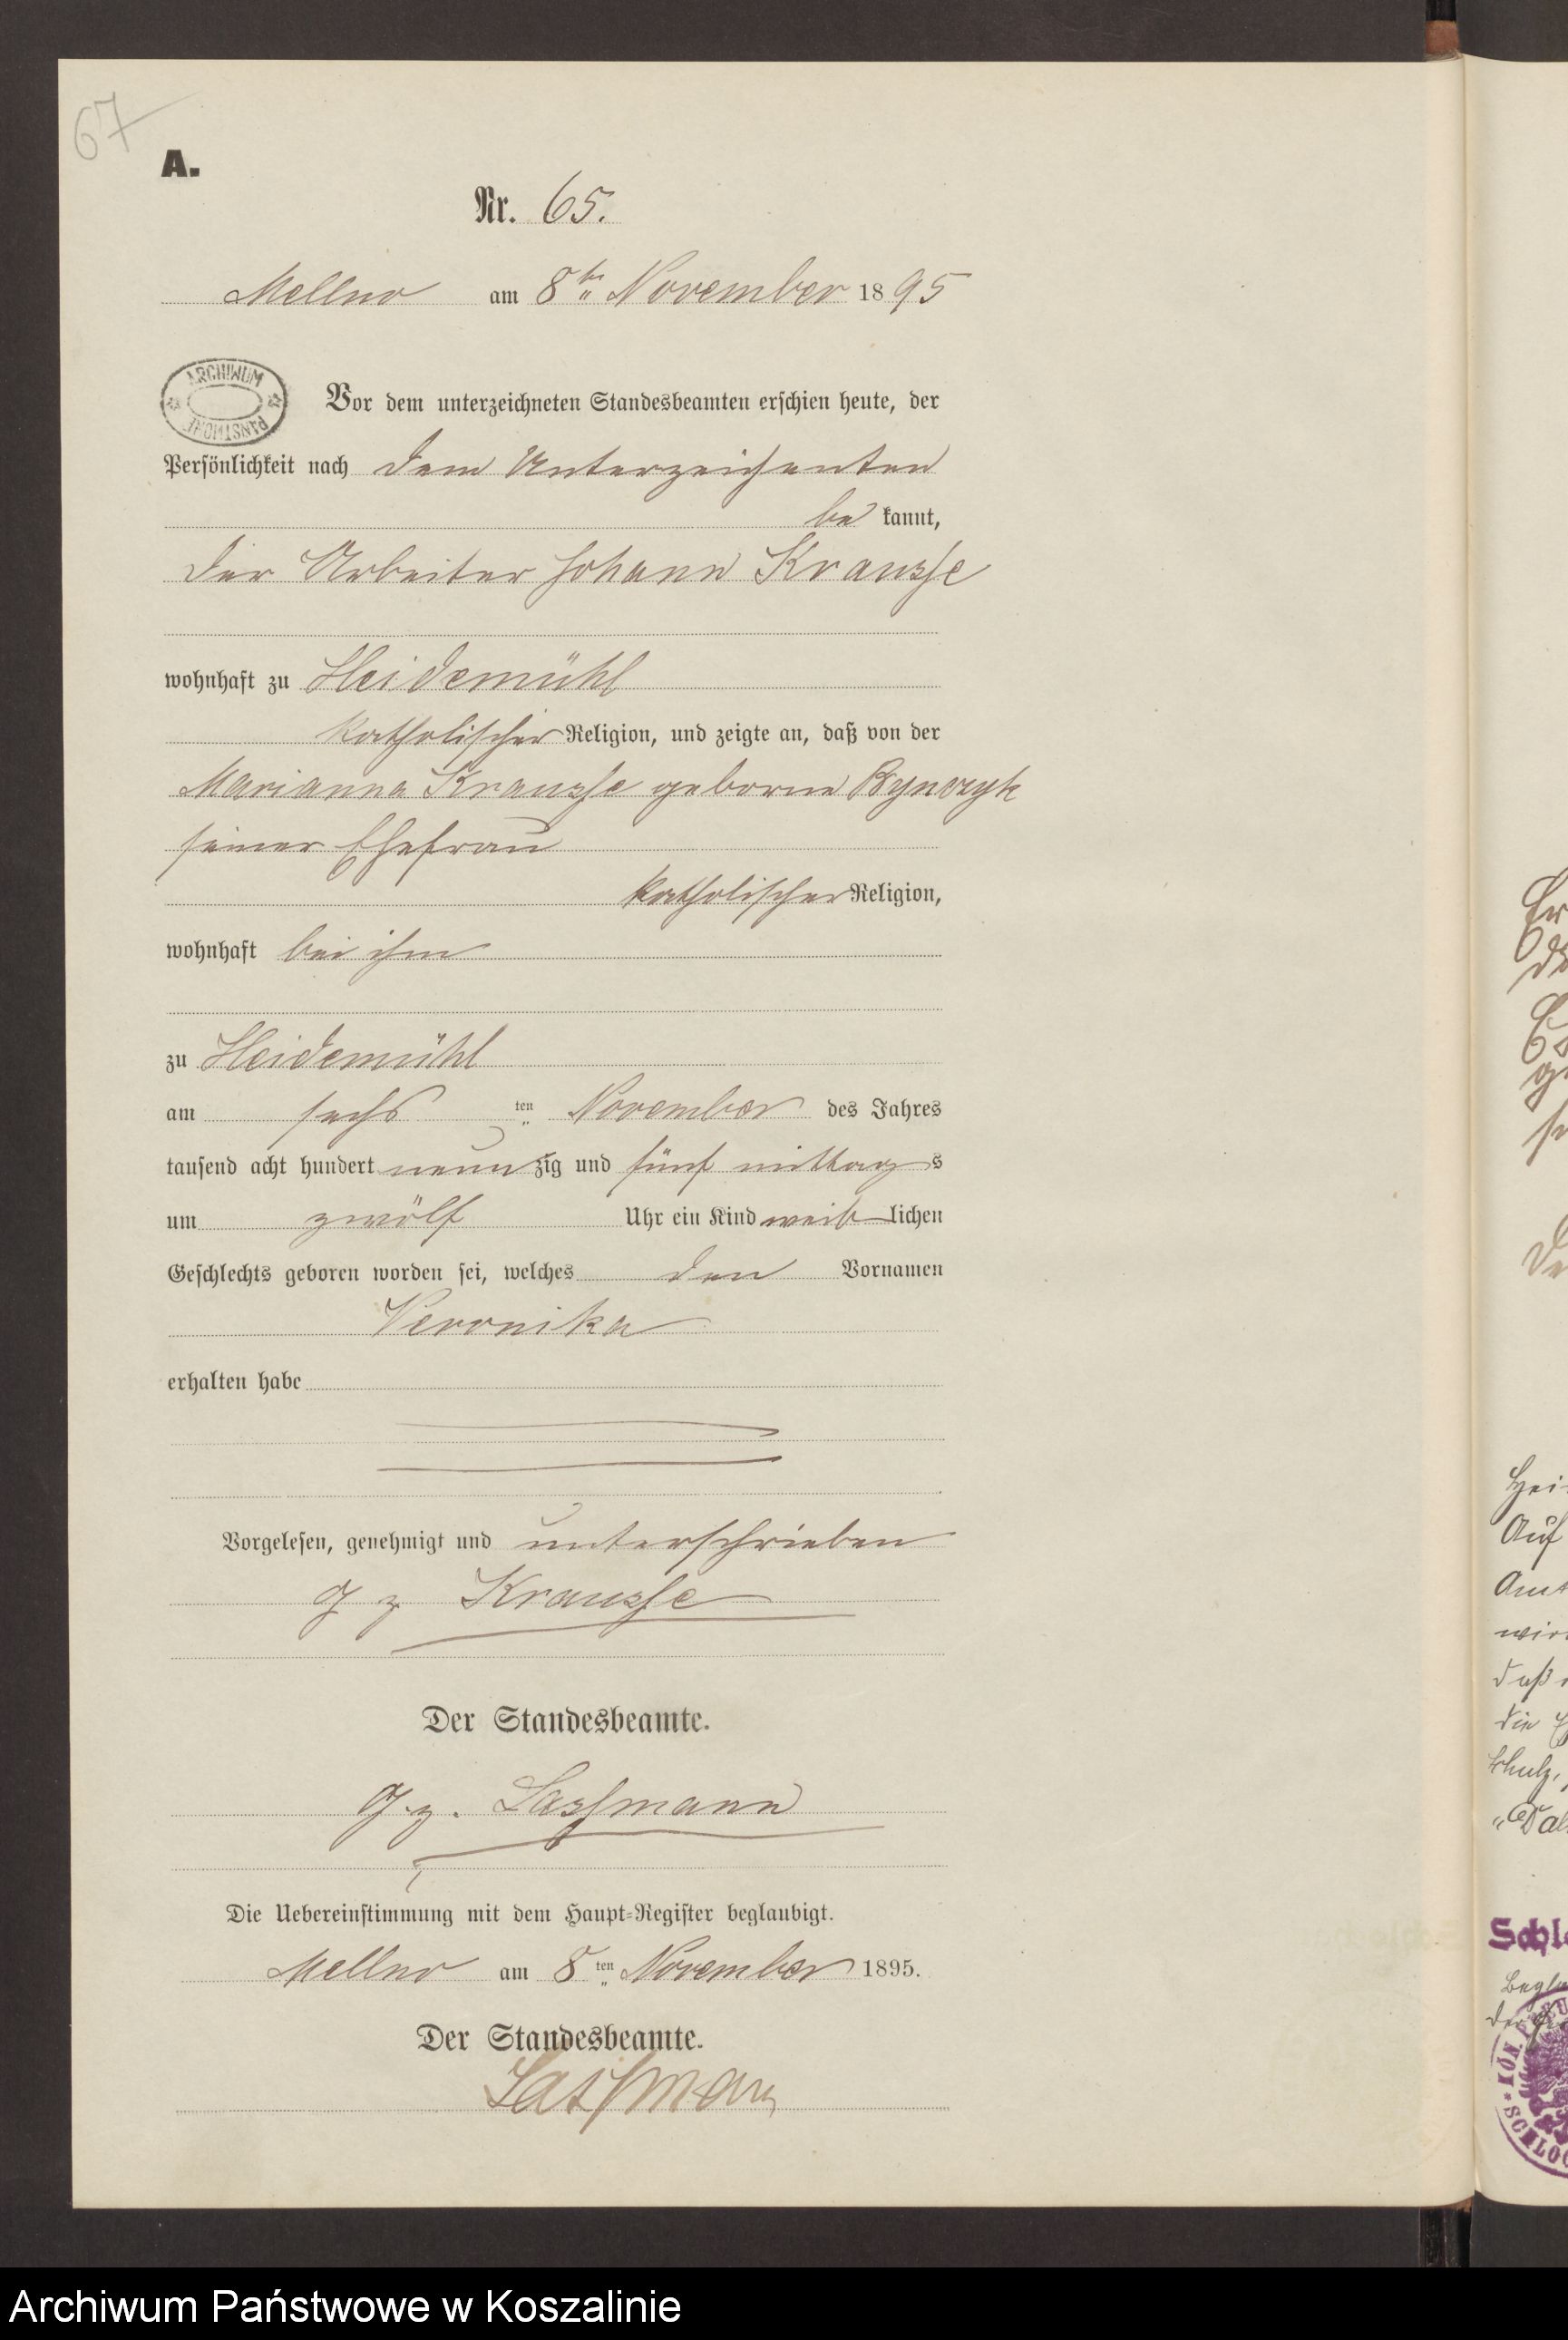 67
A.
Nr. 65.
Mellno am 8ten November 1895
ARCHIWUM PAŃSTWOWE
Vor dem unterzeichneten Standesbeamten erschien heute, der
Persönlichkeit nach dem Unterzeichenten
be kannt,
der Arbeiter Johann Krausse
wohnhaft zu Heidemühl
katholischer Religion, und zeigte an, daß von der
Marianna Krausse geborne
seiner Ehefrau
katholischer Religion,
wohnhaft bei ihm
zu Heidemühl
am sechs ten November des Jahres
tausend acht hundert neun zig und fünf mittag s
um zwölf Uhr ein Kind weib lichen
Geschlechts geboren worden sei, welches den Vornamen
Veronika
erhalten habe
Vorgelesen, genehmigt und unterschrieben
gz Krausse
Der Standesbeamte.
g.z. Lassmann
Die Uebereinstimmung mit dem Haupt-Register beglaubigt.
Mellno am 8 ten November 1895.
Der Standesbeamte.
Lassmann
Auf
daß
Archiwum Państwowe w Koszalinie